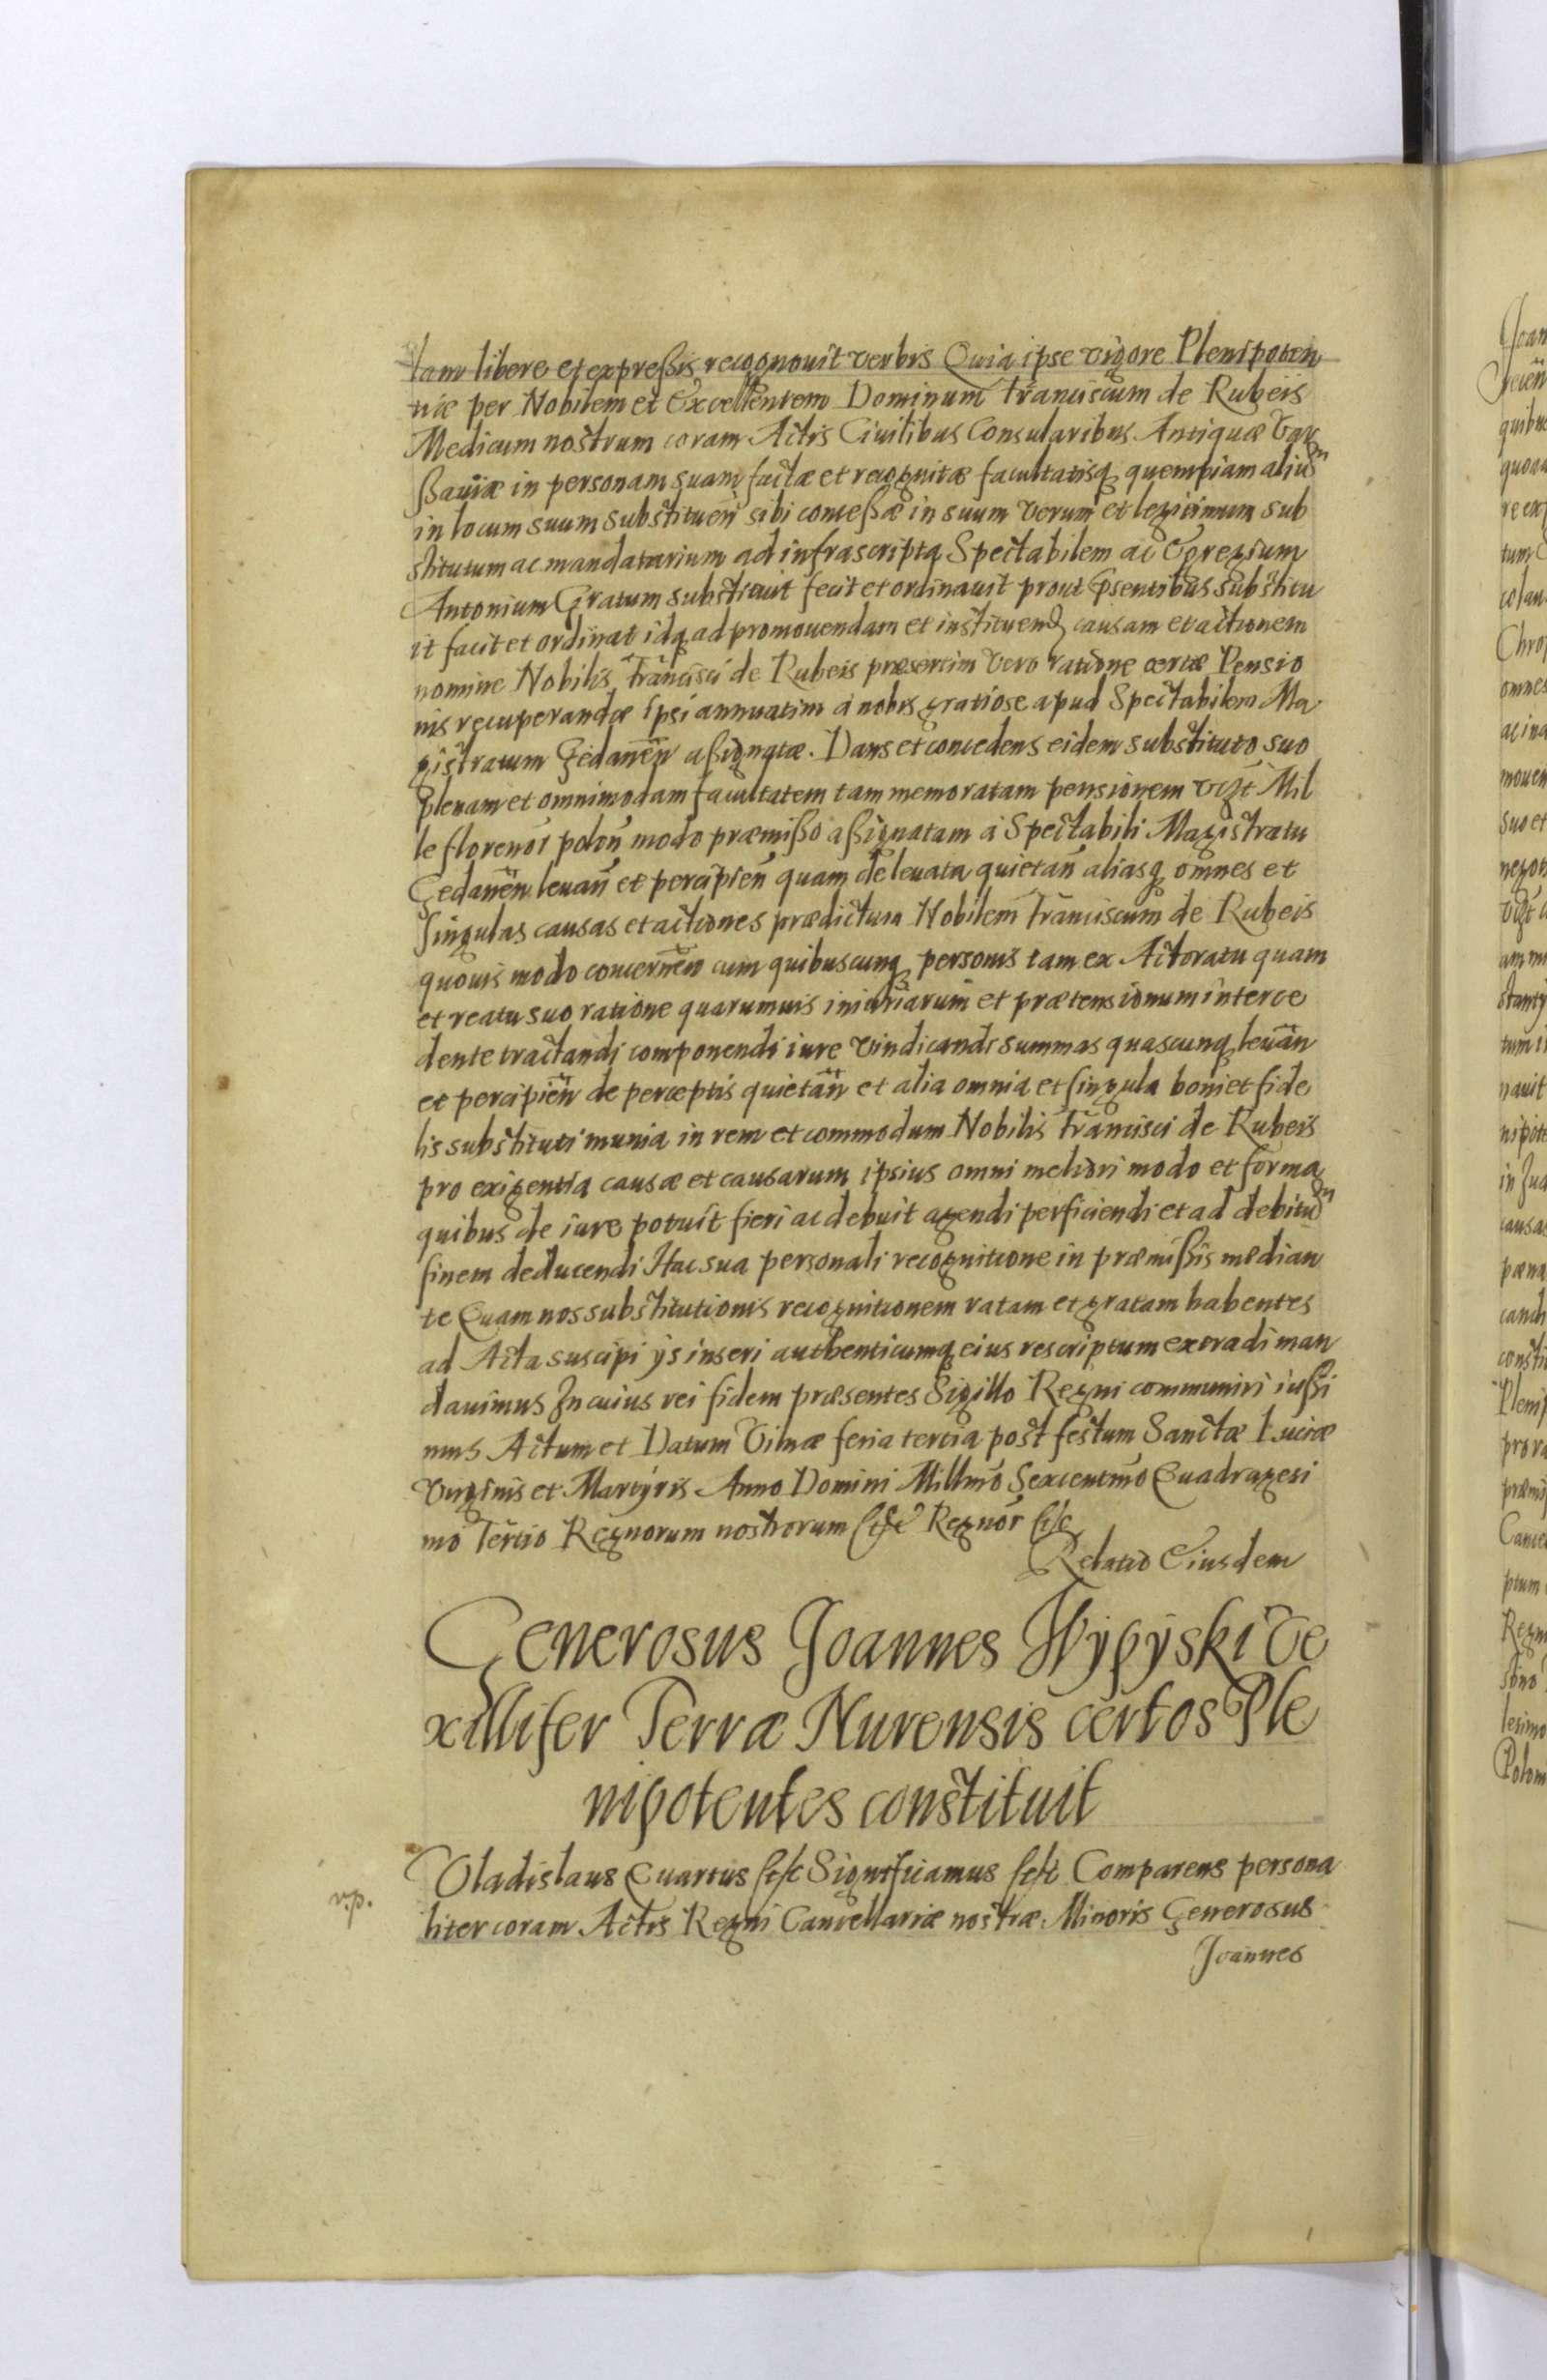 lam libere et expreßis recognouit verbis Quia ipse vigore Plenipoten
tiæ per Nobilem et Excellentem Dominum Franciscum de Rubeis
Medicum nostrum coram Actis Ciuilibus Consularibus Antiquæ Var
ßauiæ in personam suam factæ et recognitæ facultatisq quempiam aliu͞m
in locum suum substituen̄ sibi conceßæ in suum verum et legitimum sub
stitutum ac mandatarium ad infrascripta Spectabilem ac Egregium
Antonium Gratum substituit fecit et ordinauit prout p̄sentibus substitu
it facit et ordinat idq ad promouendam et instituend causam et actionem
nomine Nobilis Francisci de Rubeis præsertim vero ratione certæ Pensio
nis recuperandæ ipsi annuatim a nobis gratiose apud Spectabilem Ma
gistratum Gedanēn aßignatæ. Dans et concedens eidem substituto suo
plenam et omnimodam facultatem tam memoratam pensionem vigt Mil
le florenoš polon̄ modo præmißo aßignatam a Spectabili Magistratu
Gedanēn leuan̄ et percipien̄ quam de leuata quietan̄ aliasq omnes et
singulas causas et actiones prædictum Nobilem Franciscum de Rubeis
quouis modo concernēn cum quibuscunq personis tam ex Actoratu quam
et reatu suo ratione quarumuis iniuriarum et prætensionum interce
dente tractandi componendi iure vindicandi summas quascunq leuān
et percipiēn de perceptis quietān et alia omnia et singula boni et fide
lis substituti munia in rem et commodum Nobilis Francisci de Rubeis
pro exigentia causæ et causarum ipsius omni meliori modo et forma
quibus de iure potuit fieri ac debuit agendi perficiendi et ad debitu͞m
finem deducendi Hac sua personali recognitione in præmißis median
te Quam nos substitutionis recognitionem ratam et gratam habentes
ad Acta suscipi ijs inseri authenticumq eius rescriptum extradi man
dauimus In cuius rei fidem præsentes Sigillo Regni communiri iußi
mus Actum et Datum Vilnæ feria tertia post festum Sanctæ Luciæ
Virginis et Martyris Anno Domini Millmo Sexcentmo Quadragesi
mo Tertio Regnorum nostrorum &c Regnor &c
Relatio Eiusdem
Generosus Joannes Wypyski Ve
xillifer Terræ Nurensis certos Ple
nipotentes constituit
Vladislaus Quartus &c Significamus &c Comparens persona
v.p.
liter coram Actis Regni Cancellariæ nostræ Minoris Generosus
Joannes